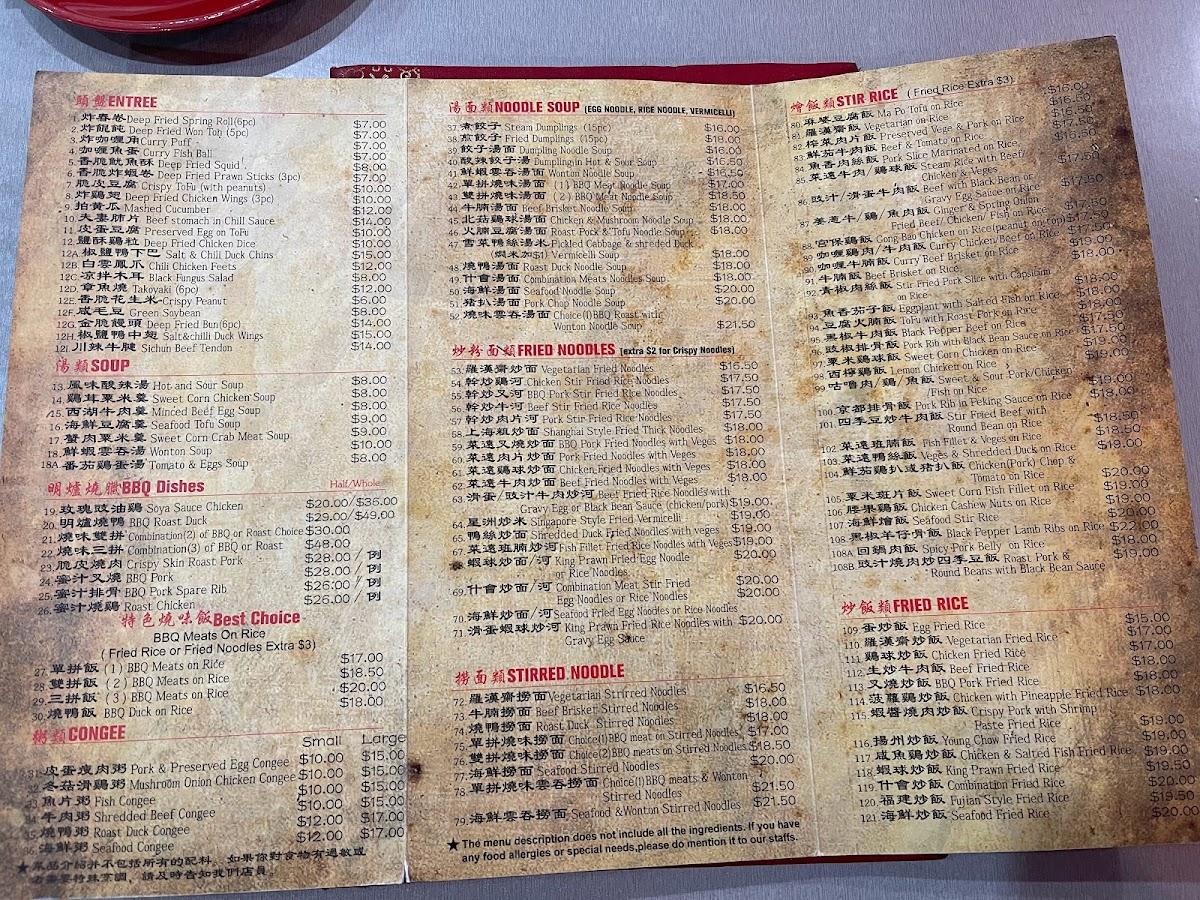 頭盤ENTREE
1. 炸春卷Deep Fried Spring Roll(6pc) $7.00
2. 炸餛飩Deep Fried Won Ton (5pc) $7.00
3. 炸咖喱角Curry Puff $7.00
4. 咖喱魚蛋 Curry Fish Ball $7.00
5. 香脆魷魚酥 Deep Fried Squid $8.00
6. 香脆炸蝦卷 Deep Fried Prawn Sticks (3pc) $7.00
7. 脆皮豆腐 Crispy ToFu (with peanuts) $10.00
8. 炸鷄翅 Deep Fried Chicken Wings (3pc) $10.00
9. 拍黃瓜 Mashed Cucumber $10.00
10. 夫妻肺片 Beef stomach in Chill Sauce $12.00
11. 皮蛋豆腐 Preserved Egg on ToFu $14.00
12. 鹽酥鷄粒 Deep Fried Chicken Dice $10.00
12A. 椒鹽鴨下巴 Salt & Chill Duck Chins $15.00
12B. 白雲鳳爪 Chili Chicken Feets $12.00
12C. 凉拌木耳 Black Fungus Salad $8.00
12D. 章魚燒 Takoyaki (6pc) $12.00
12E. 香脆花生米Crispy Peanut $6.00
12F. 咸毛豆 Green Soybean $8.00
12G. 金脆饅頭 Deep Fried Bun(6pc) $14.00
12H. 椒鹽鴨中翅 Salt&chilli Duck Wings $15.00
12I. 川辣牛腱 Sichun Beef Tendon $14.00
湯類SOUP
13. 風味酸辣湯 Hot and Sour Soup $8.00
14. 鷄茸粟米羹 Sweet Corn Chicken Soup $8.00
15. 西湖牛肉羹 Minced Beef Egg Soup $8.00
16. 海鮮豆腐羹 Seafood Tofu Soup $9.00
17. 蟹肉粟米羹 Sweet Corn Crab Meat Soup $9.00
18. 鮮蝦雲吞湯 Wonton Soup $10.00
18A. 番茄鷄蛋湯 Tomato & Eggs Soup $8.00
明爐燒臘BBQ Dishes Half/Whole
19. 玫瑰豉油鷄 Soya Sauce Chicken $20.00/$36.00
20. 明爐燒鴨 BBQ Roast Duck $29.00/$49.00
21. 燒味雙拼 Combination(2) of BBQ or Roast Choice $30.00
22. 燒味三拼 Combination(3) of BBQ or Roast $48.00
23. 脆皮燒肉 Crispy Skin Roast Pork $28.00 / 例
24. 蜜汁叉燒 BBQ Pork $28.00 / 例
25. 蜜汁排骨 BBQ Pork Spare Rib $26.00 / 例
26. 蜜汁燒鷄 Roast Chicken $26.00 / 例
特色燒味飯Best Choice
BBQ Meats On Rice
( Fried Rice or Fried Noodles Extra $3)
27. 單拼飯 (1) BBQ Meats on Rice $17.00
28. 雙拼飯 (2) BBQ Meats on Rice $18.50
29. 三拼飯 (3) BBQ Meats on Rice $20.00
30. 燒鴨飯 BBQ Duck on Rice $18.00
粥類CONGEE Small Large
31. 皮蛋瘦肉粥 Pork & Preserved Egg Congee $10.00 $15.00
32. 冬菇滑鷄粥 Mushroom Onion Chicken Congee $10.00 $15.00
33. 魚片粥 Fish Congee $10.00 $15.00
34. 牛肉粥 Shredded Beef Congee $10.00 $15.00
35. 燒鴨粥 Roast Duck Congee $12.00 $17.00
36. 海鮮粥 Seafood Congee $12.00 $17.00
★菜品介紹并不包括所有的配料，如果你對食物有過敏或
者需要特殊烹調，請及時告知我們店員。
湯面類NOODLE SOUP (EGG NOODLE, RICE NOODLE, VERMICELLI)
37. 煮餃子 Steam Dumplings (15pc) $16.00
38. 煎餃子 Fried Dumplings (15pc) $18.00
39. 餃子湯面 Dumpling Noodle Soup $16.00
40. 酸辣餃子湯 Dumpling in Hot & Sour Soup $16.50
41. 鮮蝦雲吞湯面 Wonton Noodle Soup $16.50
42. 單拼燒味湯面 (1) BBQ Meat Noodle Soup $17.00
43. 雙拼燒味湯面 (2) BBQ Meat Noodle Soup $18.50
44. 牛腩湯面 Beef Brisket Noodle Soup $18.00
45. 北菇鷄球湯面 Chicken & Mushroom Noodle Soup $18.00
46. 火腩豆腐湯面 Roast Pock & Tofu Noodle Soup $18.00
47. 雪菜鴨絲湯米 Pickled Cabbage & shreded Duck
(燜米加$1) Vermicelli Soup $18.00
48. 燒鴨湯面 Roast Duck Noodle Soup $18.00
49. 什會湯面 Combination Meats Noodle Soup $18.00
50. 海鮮湯面 Seafood Noodle Soup $20.00
51. 猪扒湯面 Pork Chop Noodle Soup $20.00
52. 燒味雲吞湯面 Choice(1)BBQ Roast with
Wonton Noodle Soup $21.50
炒粉面類FRIED NOODLES (extra $2 for Crispy Noodles)
53. 羅漢齋炒面 Vegetarian Fried Noodles $16.50
54. 幹炒鷄河 Chicken Stir Fried Rice Noodles $17.50
55. 幹炒叉河 BBQ Pork Stir Fried Rice Noodles $17.50
56. 幹炒牛河 Beef Stir Fried Rice Noodles $17.50
57. 幹炒肉片河 Pork Stir Fried Rice Noodles $17.50
58. 上海粗炒面 Shanghai Style Fried Thick Noodles $18.00
59. 菜遠叉燒炒面 BBQ Pork Fried Noodles with Veges $18.00
60. 菜遠肉片炒面 Pork Fried Noodles with Veges $18.00
61. 菜遠鷄球炒面 Chicken Fried Noodles with Veges $18.00
62. 菜遠牛肉炒面 Beef Fried Noodles with Veges $18.00
63. 滑蛋/豉汁牛肉炒河 Beef Fried Rice Noodles with
Gravy Egg or Black Bean Sauce (chicken/pork) $19.00
64. 星洲炒米 Singapore Style Fried Vermicelli $19.00
65. 鴨絲炒面 Shredded Duck Fried Noodles with veges $19.00
67. 菜遠班腩炒河 Fish Fillet Fried Rice Noodles with Veges $19.00
蝦球炒面/河 King Prawn Fried Egg Noodle $20.00
or Rice Noodles
69. 什會炒面/河 Combination Meat Stir Fried $20.00
Egg Noodles or Rice Noodles $20.00
70. 海鮮炒面/河 Seafood Fried Egg Noodles or Rice Noodles
71. 滑蛋蝦球炒河 King Prawn Fried Rice Noodles with $20.00
Gravy Egg Sauce
撈面類STIRRED NOODLE
72. 羅漢齋撈面 Vegetarian Stirred Noodles $16.50
73. 牛腩撈面 Beef Brisket Stirred Noodles $18.00
74. 燒鴨撈面 Roast Duck Stirred Noodles $18.00
75. 單拼燒味撈面 Choice(1)BBQ meat on Stirred Noodles $17.00
76. 雙拼燒味撈面 Choice(2)BBQ meats on Stirred Noodles $18.50
77. 海鮮撈面 Seafood Stirred Noodles $20.00
78. 單拼燒味雲吞撈面 Choice(1)BBQ meats & Wonton
Stirred Noodles $21.50
79. 海鮮雲吞撈面 Seafood &Wonton Stirred Noodles $21.50
★ The menu description does not include all the ingredients. If you have
any food allergies or special needs,please do mention it to our staffs.
燴飯類STIR RICE ( Fried Rice Extra $3)
80. 麻婆豆腐飯 Ma Po Tofu on Rice $16.00
81. 羅漢齋飯 Vegetarian on Rice $16.50
82. 欖菜肉片飯 Preserved Vege & Pork on Rice $16.50
83. 鮮茄牛肉飯 Beef & Tomato on Rice
84. 魚香肉絲飯 Pork Slice Marinated on Rice
85. 菜遠牛肉/鷄球飯 Steam Rice with Beef/ $17.50
Chicken & Veges
86. 豉汁/滑蛋牛肉飯 Beef with Black Bean or $17.50
Gravy Egg Sauce on Rice
87. 姜葱牛/鷄/魚肉飯 Ginger & Spring Onion
Fried Beef/ Chicken/ Fish on Rice
88. 宮保鷄飯 Gong Bao Chicken on Rice(peanut on top) $17.50
89. 咖喱鷄肉/牛肉飯 Curry Chicken/Beef on Rice
90. 咖喱牛腩飯 Curry Beef Brisket on Rice $19.00
91. 牛腩飯 Beef Brisket on Rice $18.00
92. 青椒肉絲飯 Stir Fried Pork Slice with Capsium
on Rice $18.00
93. 魚香茄子飯 Eggplant with Salted Fish on Rice $18.00
94. 豆腐火腩飯 ToFu with Roast Pork on Rice
95. 黑椒牛肉飯 Black Pepper Beef on Rice
96. 豉椒排骨飯 Pork Rib with Black Bean Sauce on Rice
97. 粟米鷄球飯 Sweet Corn Chicken on Rice
98. 西檸鷄飯 Lemon Chicken on Rice
99. 咕嚕肉/鷄/魚飯 Sweet & Sour Pork/Chicken
/Fish on Rice $19.00
100. 京都排骨飯 Pork Rib in Peking Sauce on Rice $19.00
101. 四季豆炒牛肉飯 Stir Fried Beef with
Round Bean on Rice $18.50
102. 菜遠班腩飯 Fish Fillet & Veges on Rice $18.50
103. 菜遠鴨絲飯 Veges & Shredded Duck on Rice $19.00
104. 鮮茄鷄扒或猪扒飯 Chicken(Pork) Chop &
Tomato on Rice $20.00
105. 粟米斑片飯 Sweet Corn Fish Fillet on Rice $19.00
106. 腰果鷄飯 Chicken Cashew Nuts on Rice $19.00
107. 海鮮燴飯 Seafood Stir Rice $20.00
108. 黑椒羊仔骨飯 Black Pepper Lamb Ribs on Rice $22.00
108A 回鍋肉飯 Spicy Pork Belly on Rice $18.00
108B 豉汁燒肉炒四季豆飯 Roast Pork & $19.00
Round Beans with Black Bean Sauce
炒飯類FRIED RICE
109 蛋炒飯 Egg Fried Rice $15.00
110 羅漢齋炒飯 Vegetarian Fried Rice $17.00
111. 鷄球炒飯 Chicken Fried Rice $18.00
112. 生炒牛肉飯 Beef Fried Rice $18.00
113. 叉燒炒飯 BBQ Pork Fried Rice $18.00
114. 菠蘿鷄炒飯 Chicken with Pineapple Fried Rice $18.00
115. 蝦醬燒肉炒飯 Crispy Pork with Shrimp
Paste Fried Rice $19.00
116. 揚州炒飯 Young Chow Fried Rice $19.00
117. 咸魚鷄炒飯 Chicken & Salted Fish Fried Rice $19.00
118. 蝦球炒飯 King Prawn Fried Rice $19.50
119. 什會炒飯 Combination Fried Rice $20.00
120. 福建炒飯 Fujian Style Fried Rice $19.50
121. 海鮮炒飯 Seafood Fried Rice $20.00